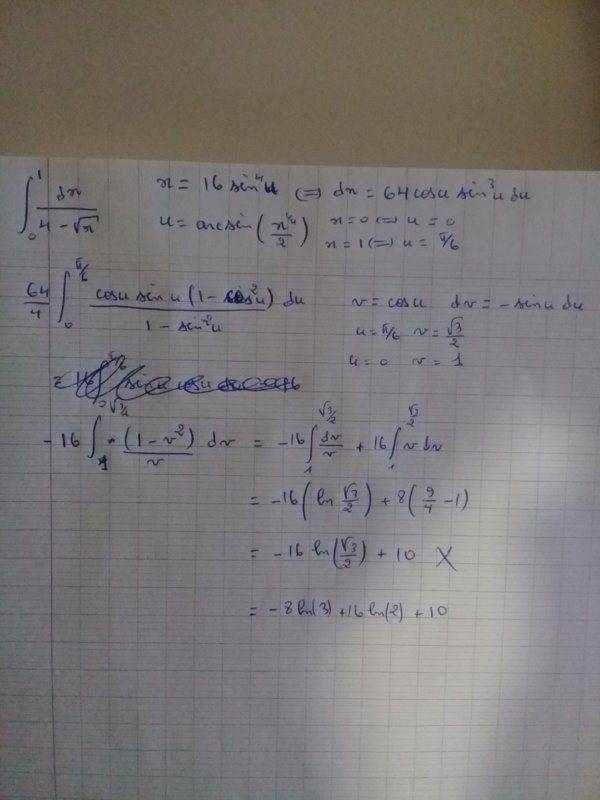 ∫₀¹ dx / (4 − √x)    x = 16 sin⁴u ⟺ dx = 64 cosu sin³u du
u = arcsin(x^{1/4} / 2)    x = 0 ⟺ u = 0
x = 1 ⟺ u = π/6
64/4 ∫₀^{π/6} cosu sinu (1 − cos²u) du / (1 − sin²u)    v = cosu    dv = − sinu du
u = π/6    v = √3/2
u = 0    v = 1
−16 ∫₁^{√3/2} (1 − v²) dv / v = −16 ∫₁^{√3/2} dv/v + 16 ∫₁^{√3/2} v dv
= −16 (ln √3/2) + 8 (9/4 − 1)
= −16 ln(√3/2) + 10 X
= − 8 ln(3) + 16 ln(2) + 10